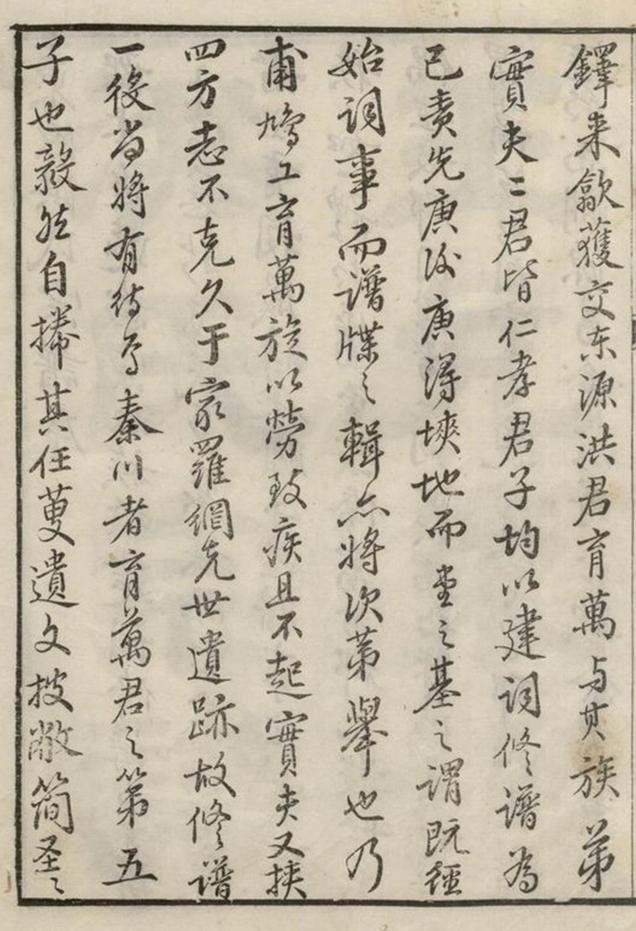 鐸来歙獲交东源洪君育萬与其族弟
實夫二君皆仁孝君子均以建词修谱為
己责先庚後庚得塽地而堂之基之谓既経
始词事而谱牒之輯亦将次第舉也乃
甫鳩工育萬旋以勞致疾且不起實夫又挟
四方志不克久于家羅網先世遺跡故修谱
一役尚将有待焉秦川者育萬君之第五
子也毅然自掃其任蒐遺文披敝简圣之